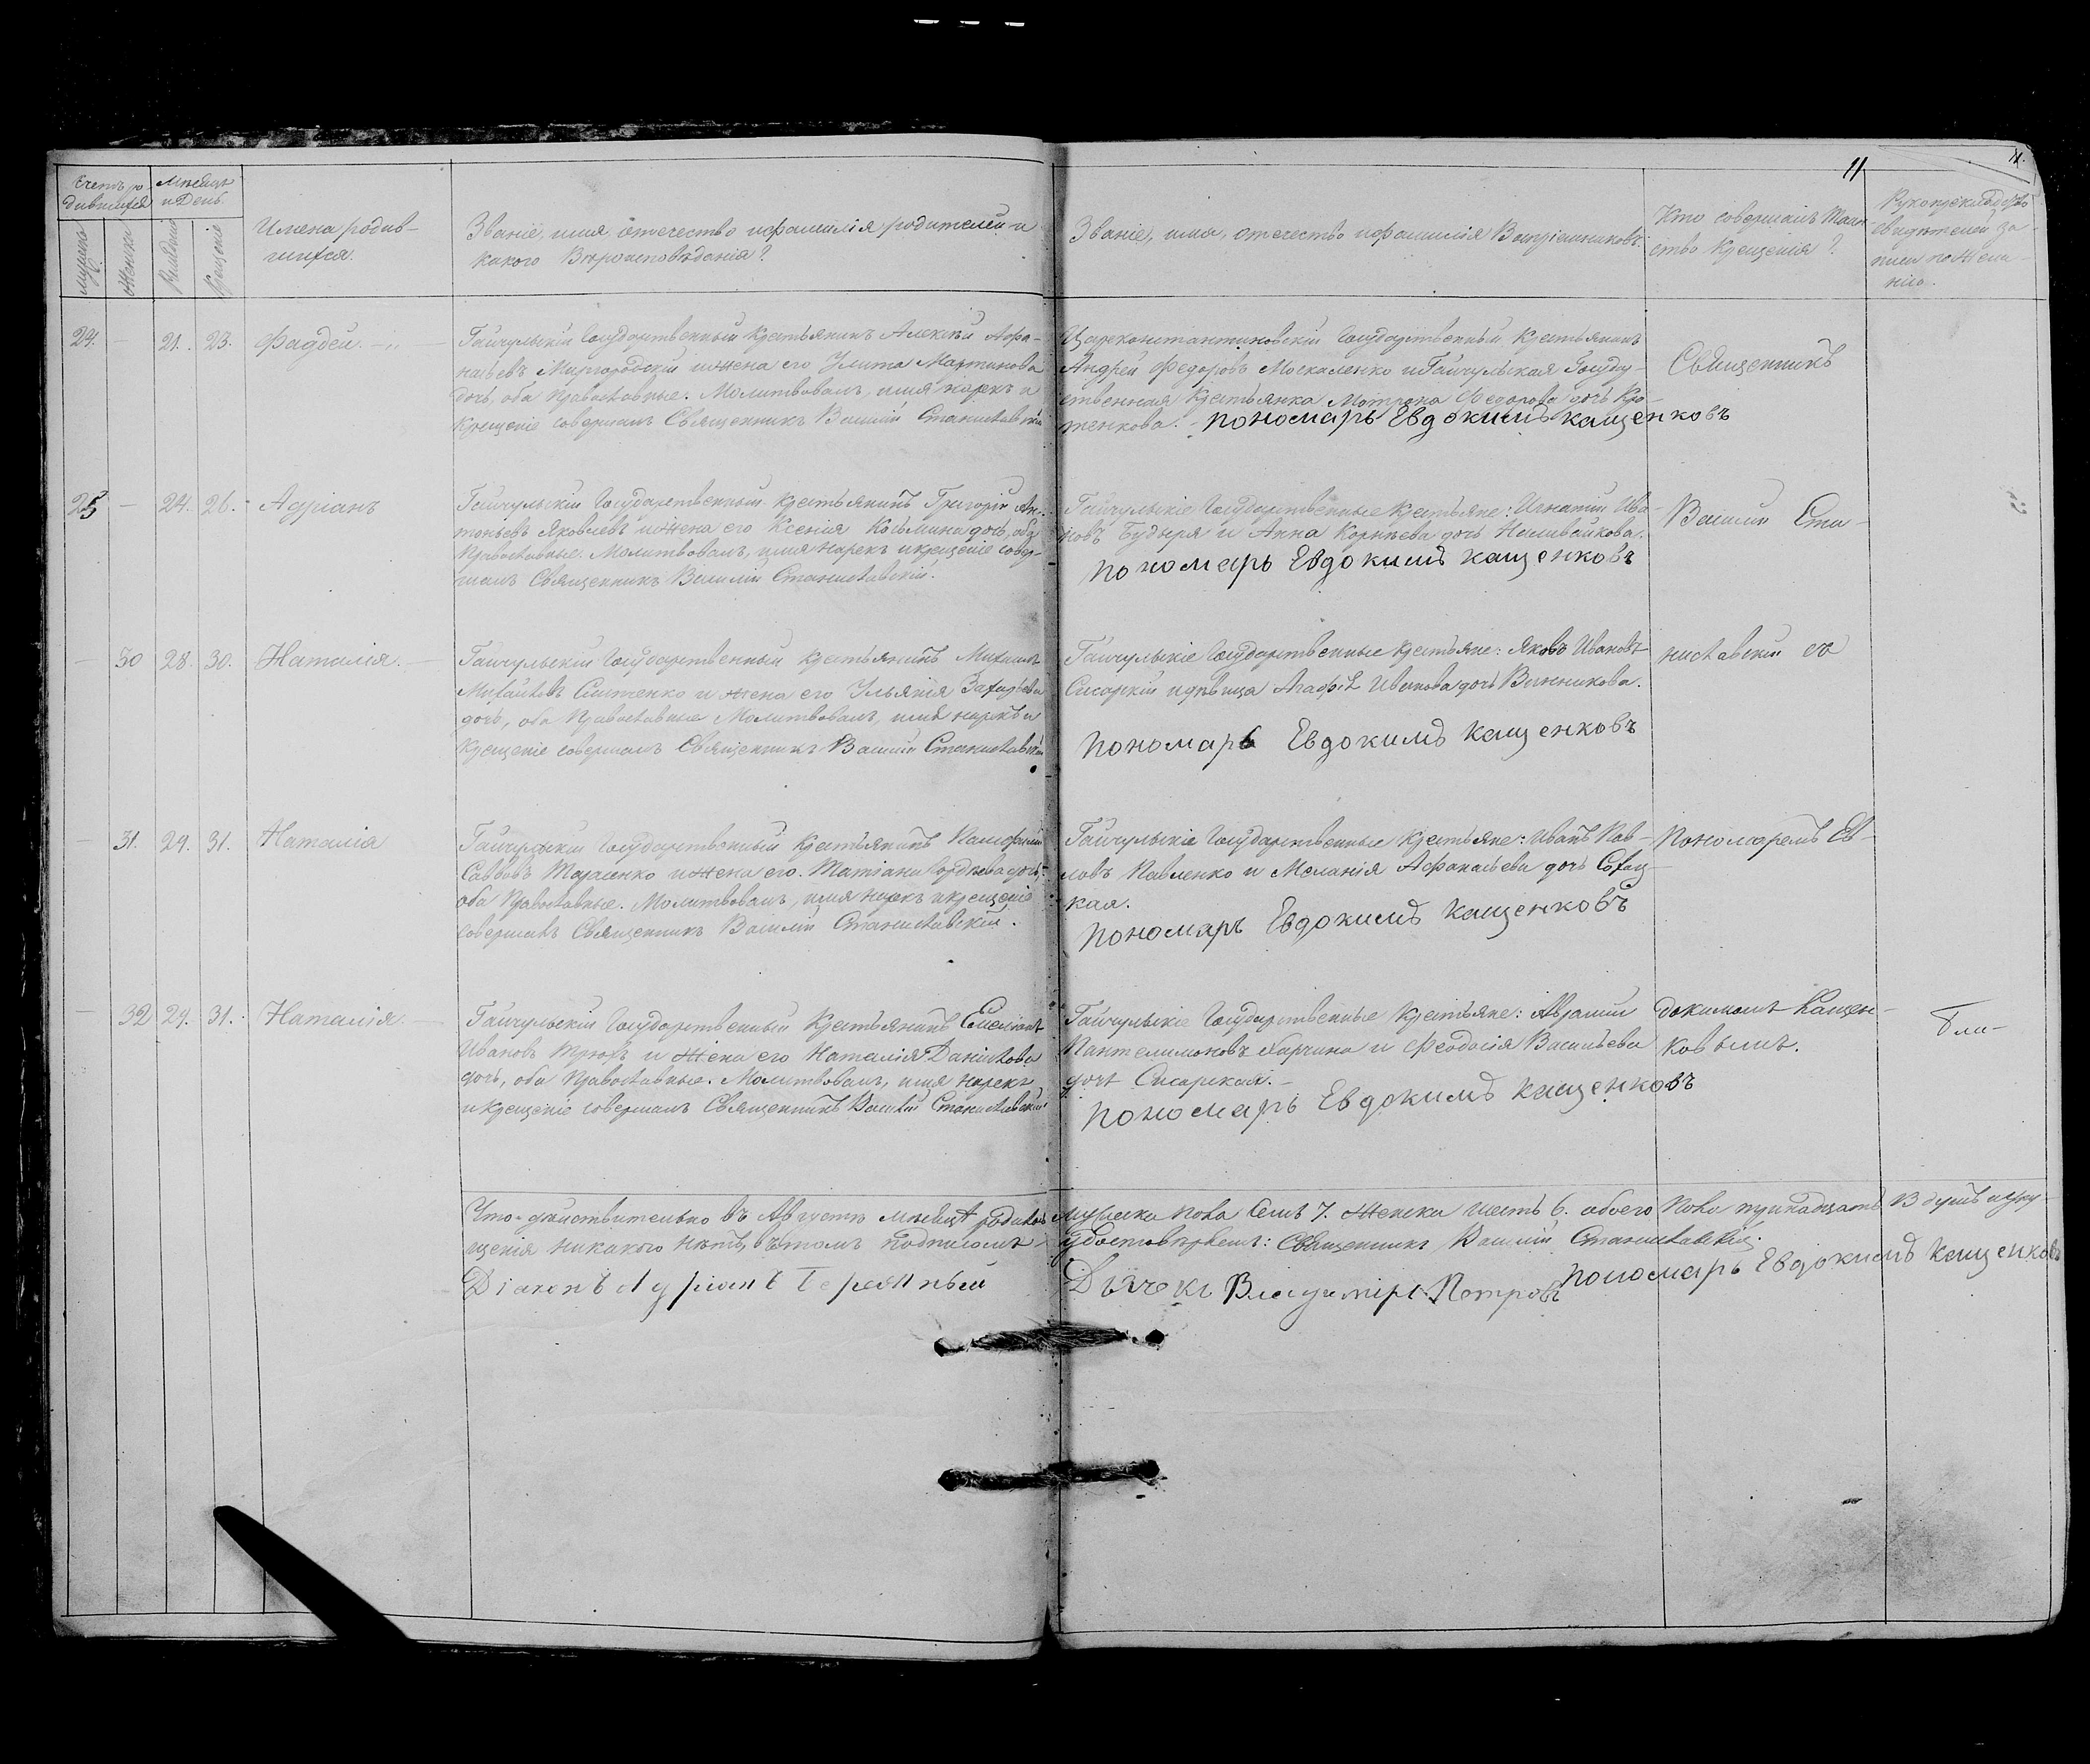 11
11.
Счетъ ро-
дившихся
Мѣсяцъ
и День.
Мужска
Женска
Рожденiе
Крещенiе
Имена родив-
шихся.
Званiе, имя отечество и фамилiя родителей и
какого Вѣроисповѣданiя?
Званiе, имя, отечество и фамилiя Воспрiемниковъ.
Кто совершалъ Таин-
ство Крещенiя?
Рукоприкладство
свидѣтелей за-
писи по жела-
нiю.
24. — 21. 23. Фаддей.
Гайчульскiй Государственный Крестьянинъ Алексѣй Афа-
насьевъ Миргородскiй и жена его Улита Мартинова
дочь, оба Православные. Молитвовалъ, имя нарекъ и
Крещенiе совершалъ Священникъ Василiй Станиславскiй
Цареконстантиновскiй Государственный Крестьянинъ
Андрей Федоровъ Москаленко и Гайчульская Госуда-
рственная Крестьянка Мотрона Федорова дочь
тенкова. Пономарь Евдокимъ Кащенковъ
Священникъ
25 — 24. 26. Адрiанъ
Гайчульскiй Государственный Крестьянинъ Григорiй Ан-
тоньевъ Яковлевъ и жена его Ксенiя Козьмина дочь, оба
Православные. Молитвовалъ, имя нарекъ и крещенiе совер-
шалъ Священникъ Василiй Станиславскiй.
Гайчульскiе Государственные Крестьяне: Игнатiй Ива-
новъ Будыря и Анна Корнѣева дочь Наливайкова.
Пономарь Евдокимъ Кащенковъ
Василiй Ста-
— 30 28. 30. Наталiя.
Гайчульскiй Государственный Крестьянинъ Михаилъ
Михайловъ Слитенко и жена его Ульянiя Захарьева
дочь, оба Православные Молитвовалъ, имя нарекъ и
Крещенiе совершалъ Священникъ Василiй Станиславскiй
Гайчульскiе Государственные Крестьяне: Яковъ Ивановъ
Сисарскiй и дѣвица Агафiя Иванова дочь Винникова.
Пономарь Евдокимъ Кащенковъ
ниславскiй съ
— 31. 29. 31. Наталiя
Гайчульскiй Государственный Крестьянинъ Памфилъ
Саввовъ Тарасенко и жена его Татiана Гордѣева дочь,
оба Православные. Молитвовалъ, имя нарекъ и крещенiе
совершалъ Священникъ Василiй Станиславскiй.
Гайчульскiе Государственные Крестьяне: Иванъ Пав-
ловъ Павленко и Меланiя Афанасьева дочь
кая.
Пономарь Евдокимъ Кащенковъ
Пономаремъ Ев-
— 32 29. 31. Наталiя.
Гайчульскiй Государственный Крестьянинъ Емелiянъ
Ивановъ и жена его Наталiя Данiилова
дочь, оба Православные. Молитвовалъ, имя нарекъ
и Крещенiе совершалъ Священникъ Василiй Станиславскiй
Гайчульскiе Государственные Крестьяне: Аврамiй
Пантелимоновъ и Феодосiя Васильева
дочь Сисарская.
Пономарь Евдокимъ Кащенковъ
докимомъ Кащен-
ковымъ.
Бла-
Что дѣйствительно въ Августѣ мѣсяцѣ родилось Мужска пола семь 7. Женска шесть 6. обоего Пола тринадцать
щенiя никакого нѣтъ, въ томъ подписомъ удостовѣряемъ: Священникъ Василiй Станиславскiй.
Дiаконъ Адрiанъ Дьячекъ Владимiръ Петровъ Пономарь Евдокимъ Кащенковъ